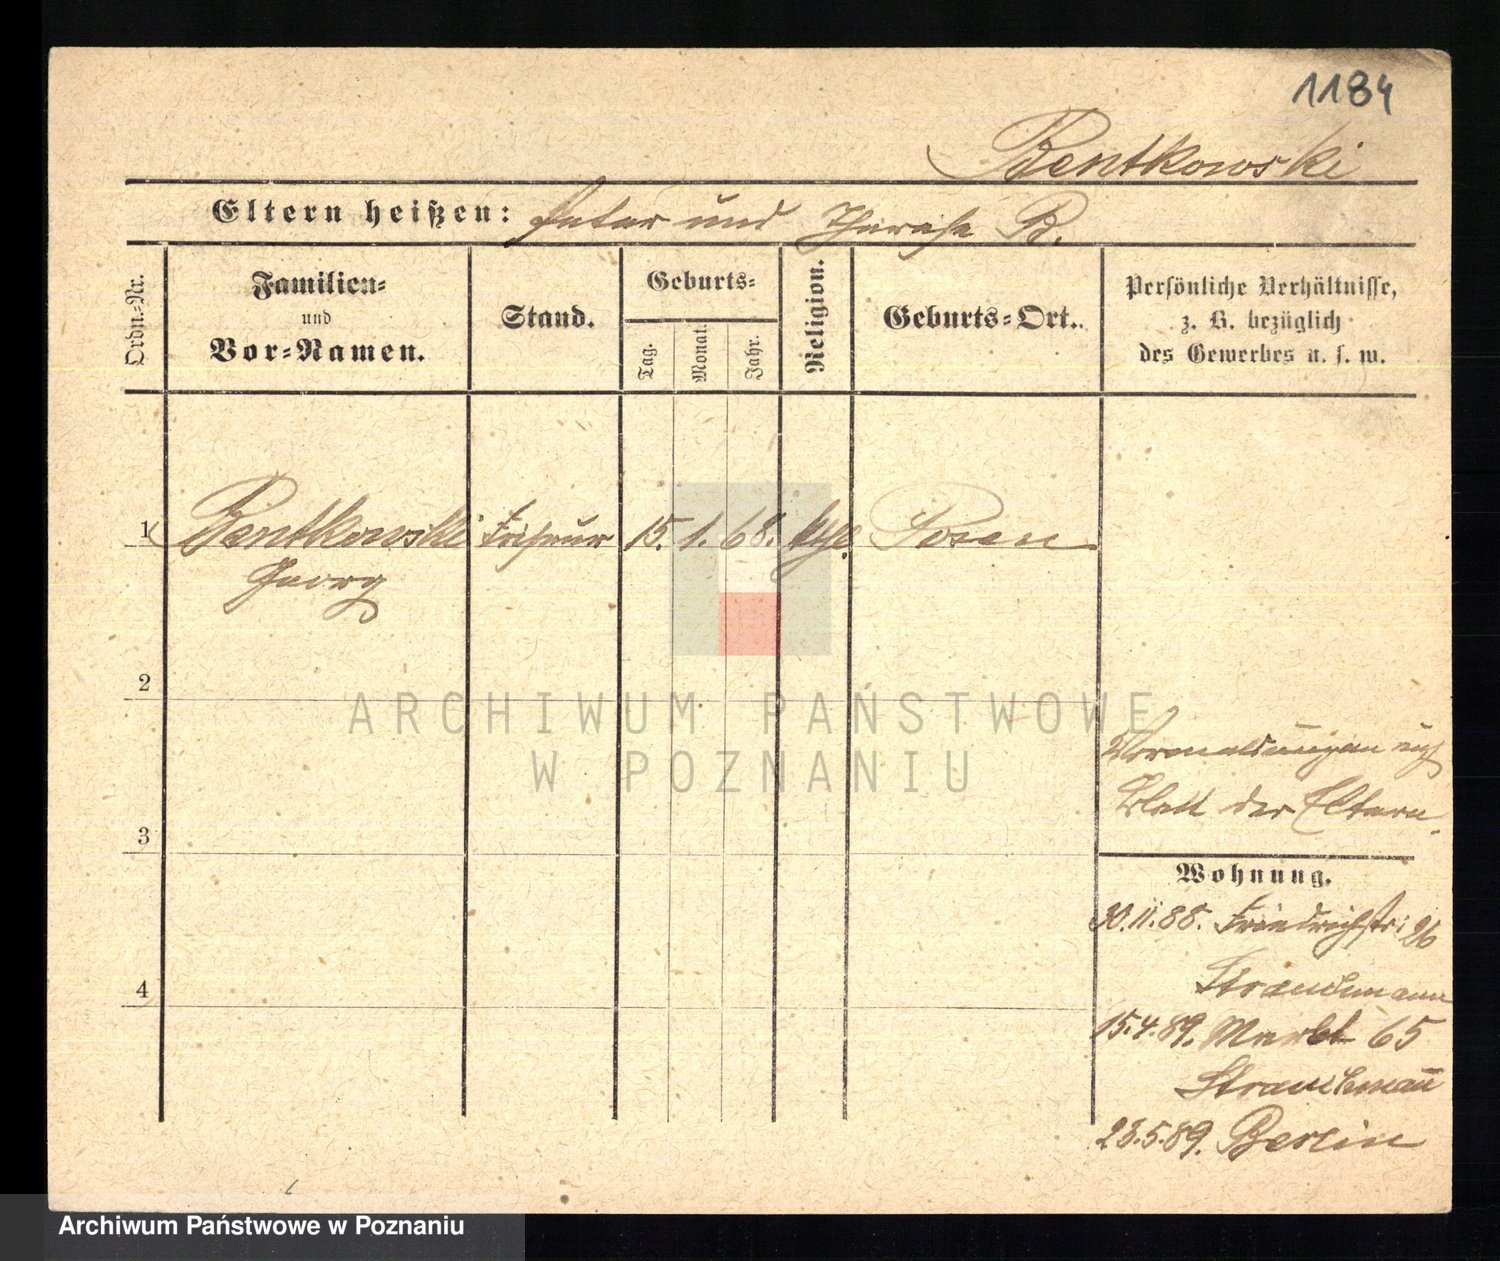 1184
Bentkowski
Eltern heißen: Peter und Therese B.
Ordn.-Nr.
Familien-
und
Vor-Namen.
Stand.
Geburts-
Tag.
Monat.
Jahr.
Religion.
Geburts-Ort.
Persönliche Verhältnisse,
z. B. bezüglich
des Gewerbes u. s. w.
1 Bentkowski Friseur 15. 1. 68. kth. Posen
Georg
2
ARCHIWUM PAŃSTWOWE
W POZNANIU
Vermeldungen auf
Blatt der Eltern.
3
Wohnung.
30.11.88. Friedrichstr. 26
Strauchmann
4
15.4.89. Markt 65
Strauchmann
23.5.89. Berlin
Archiwum Państwowe w Poznaniu